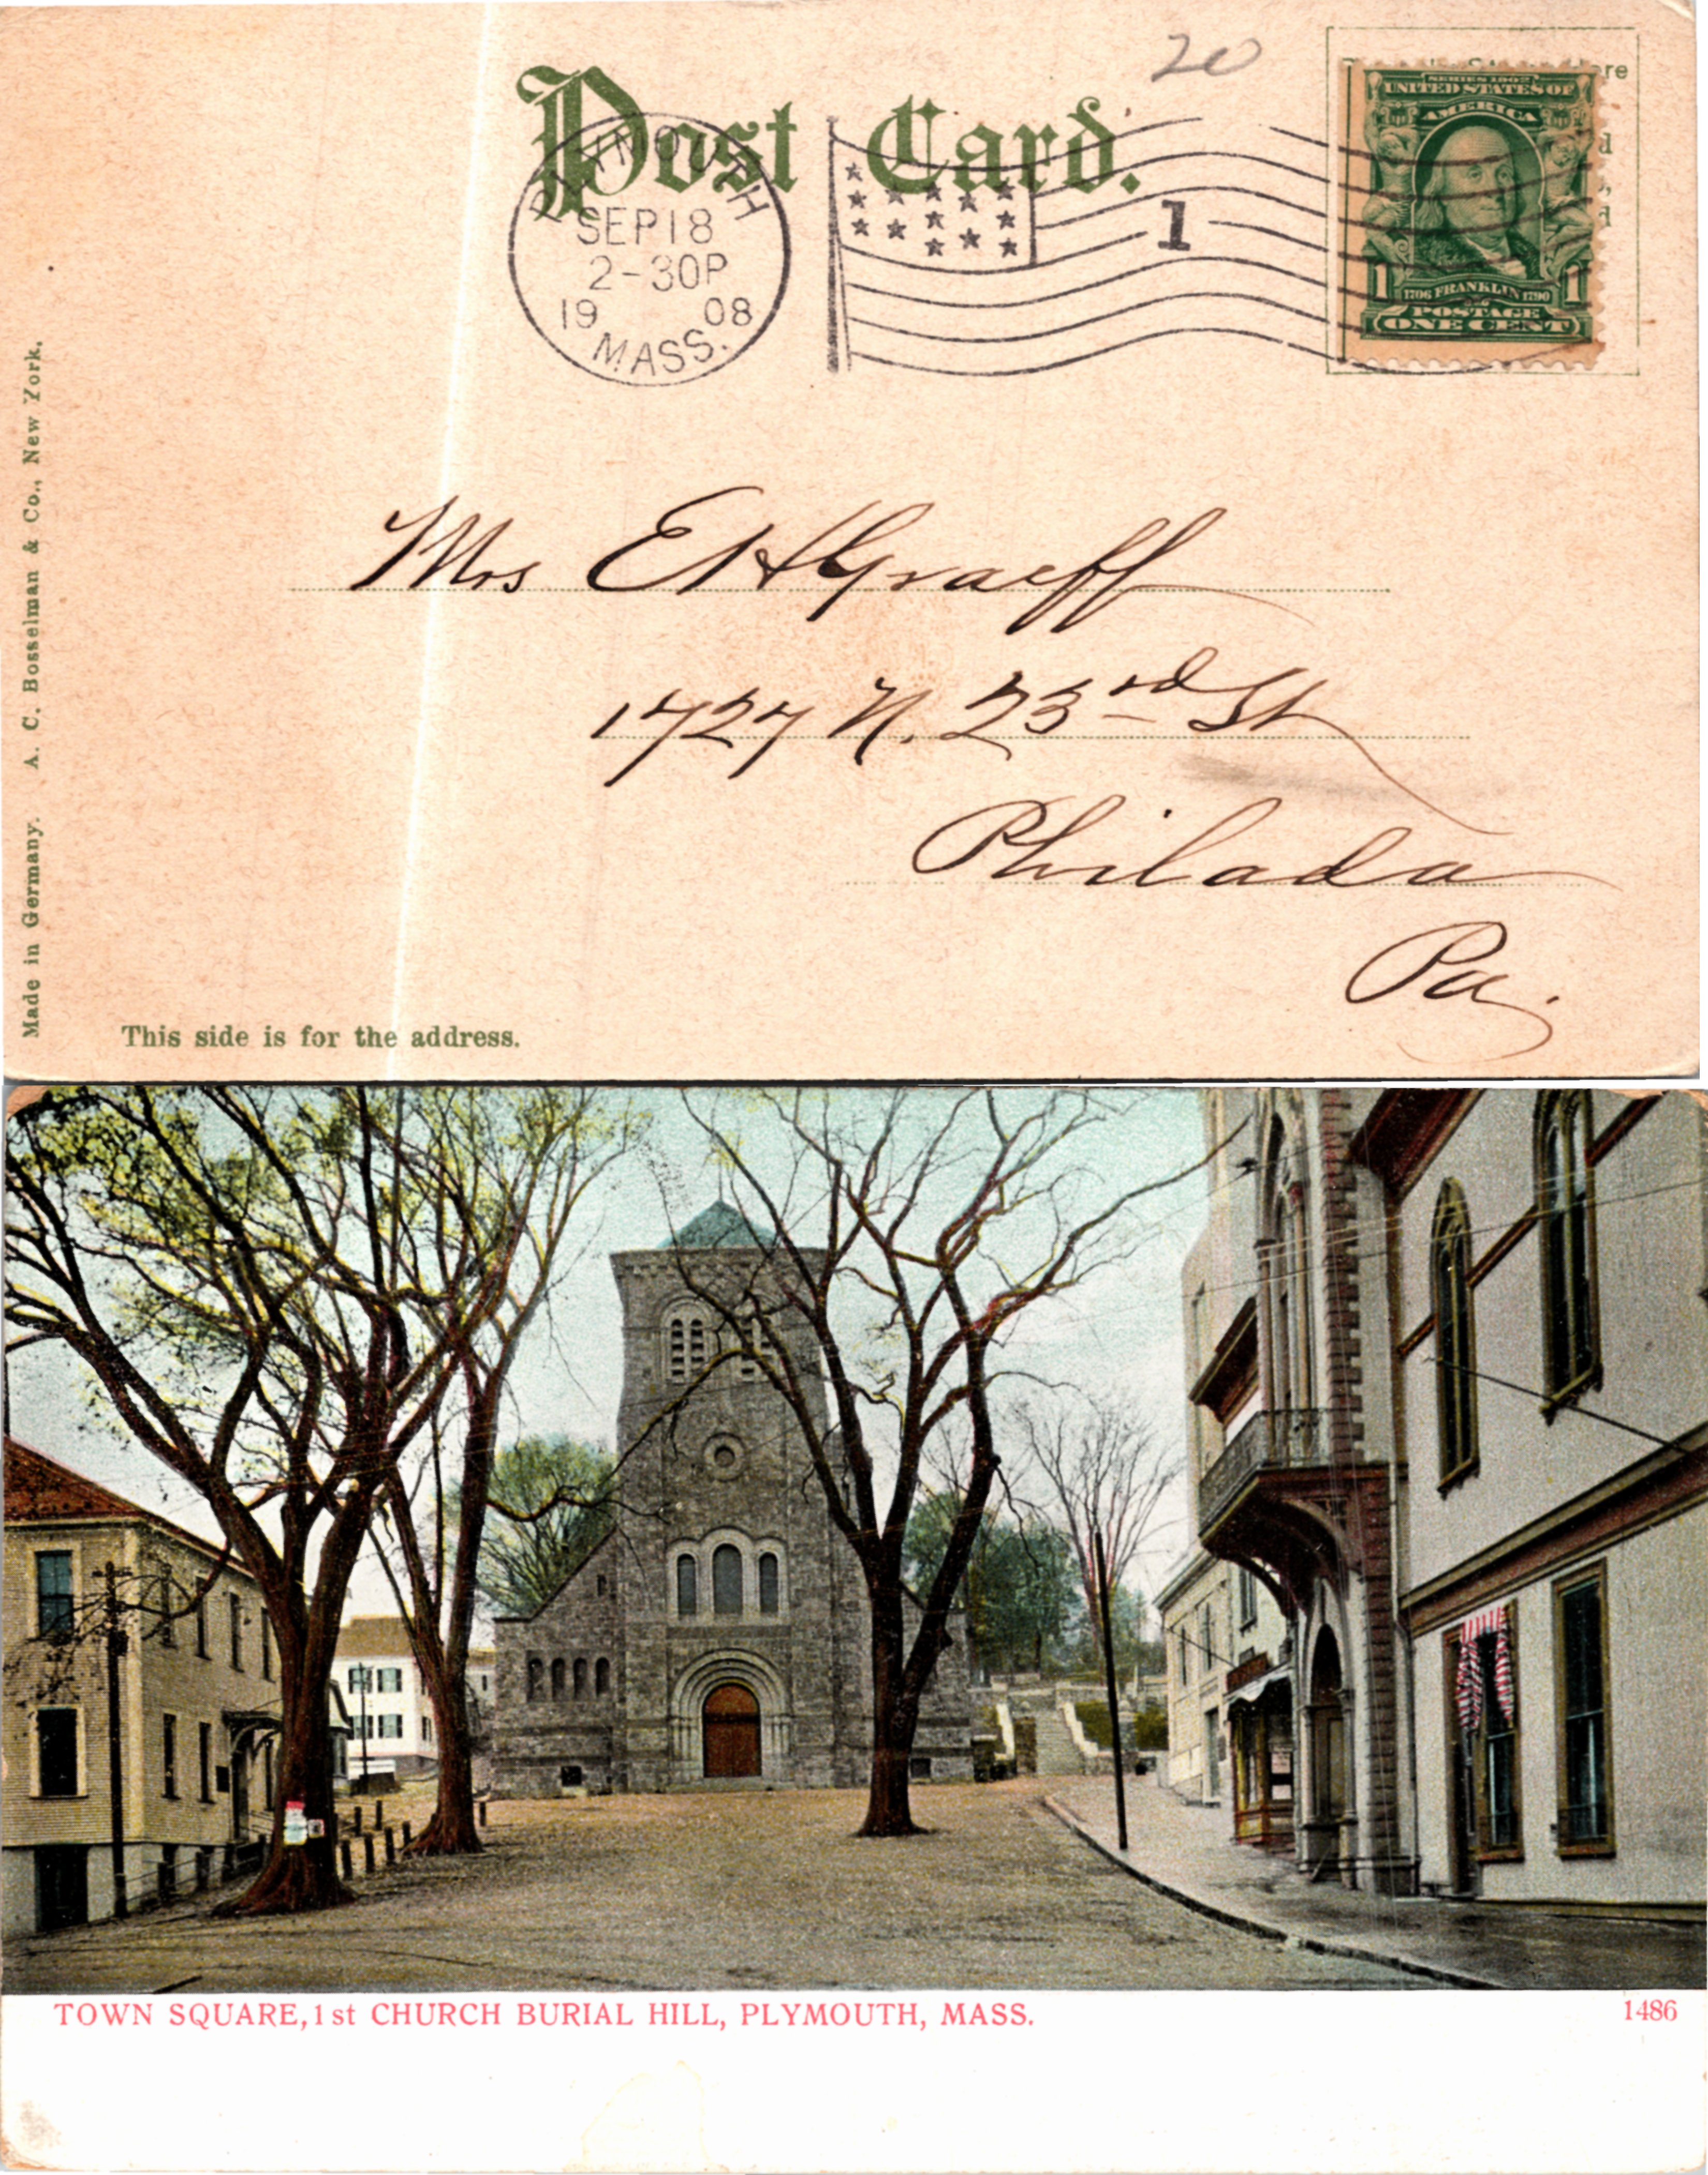 20
Post Card.
PLYMOUTH
SEP 18
2-30P
1908
MASS.
1
SERIES 1902
UNITED STATES OF
AMERICA
1 1706 FRANKLIN 1790 1
POSTAGE
ONE CENT
Mrs E H Graeff
1727 N. 23rd St
Philada
Pa.
Made in Germany. A. C. Bosselman & Co., New York.
This side is for the address.
TOWN SQUARE, 1st CHURCH BURIAL HILL, PLYMOUTH, MASS.
1486